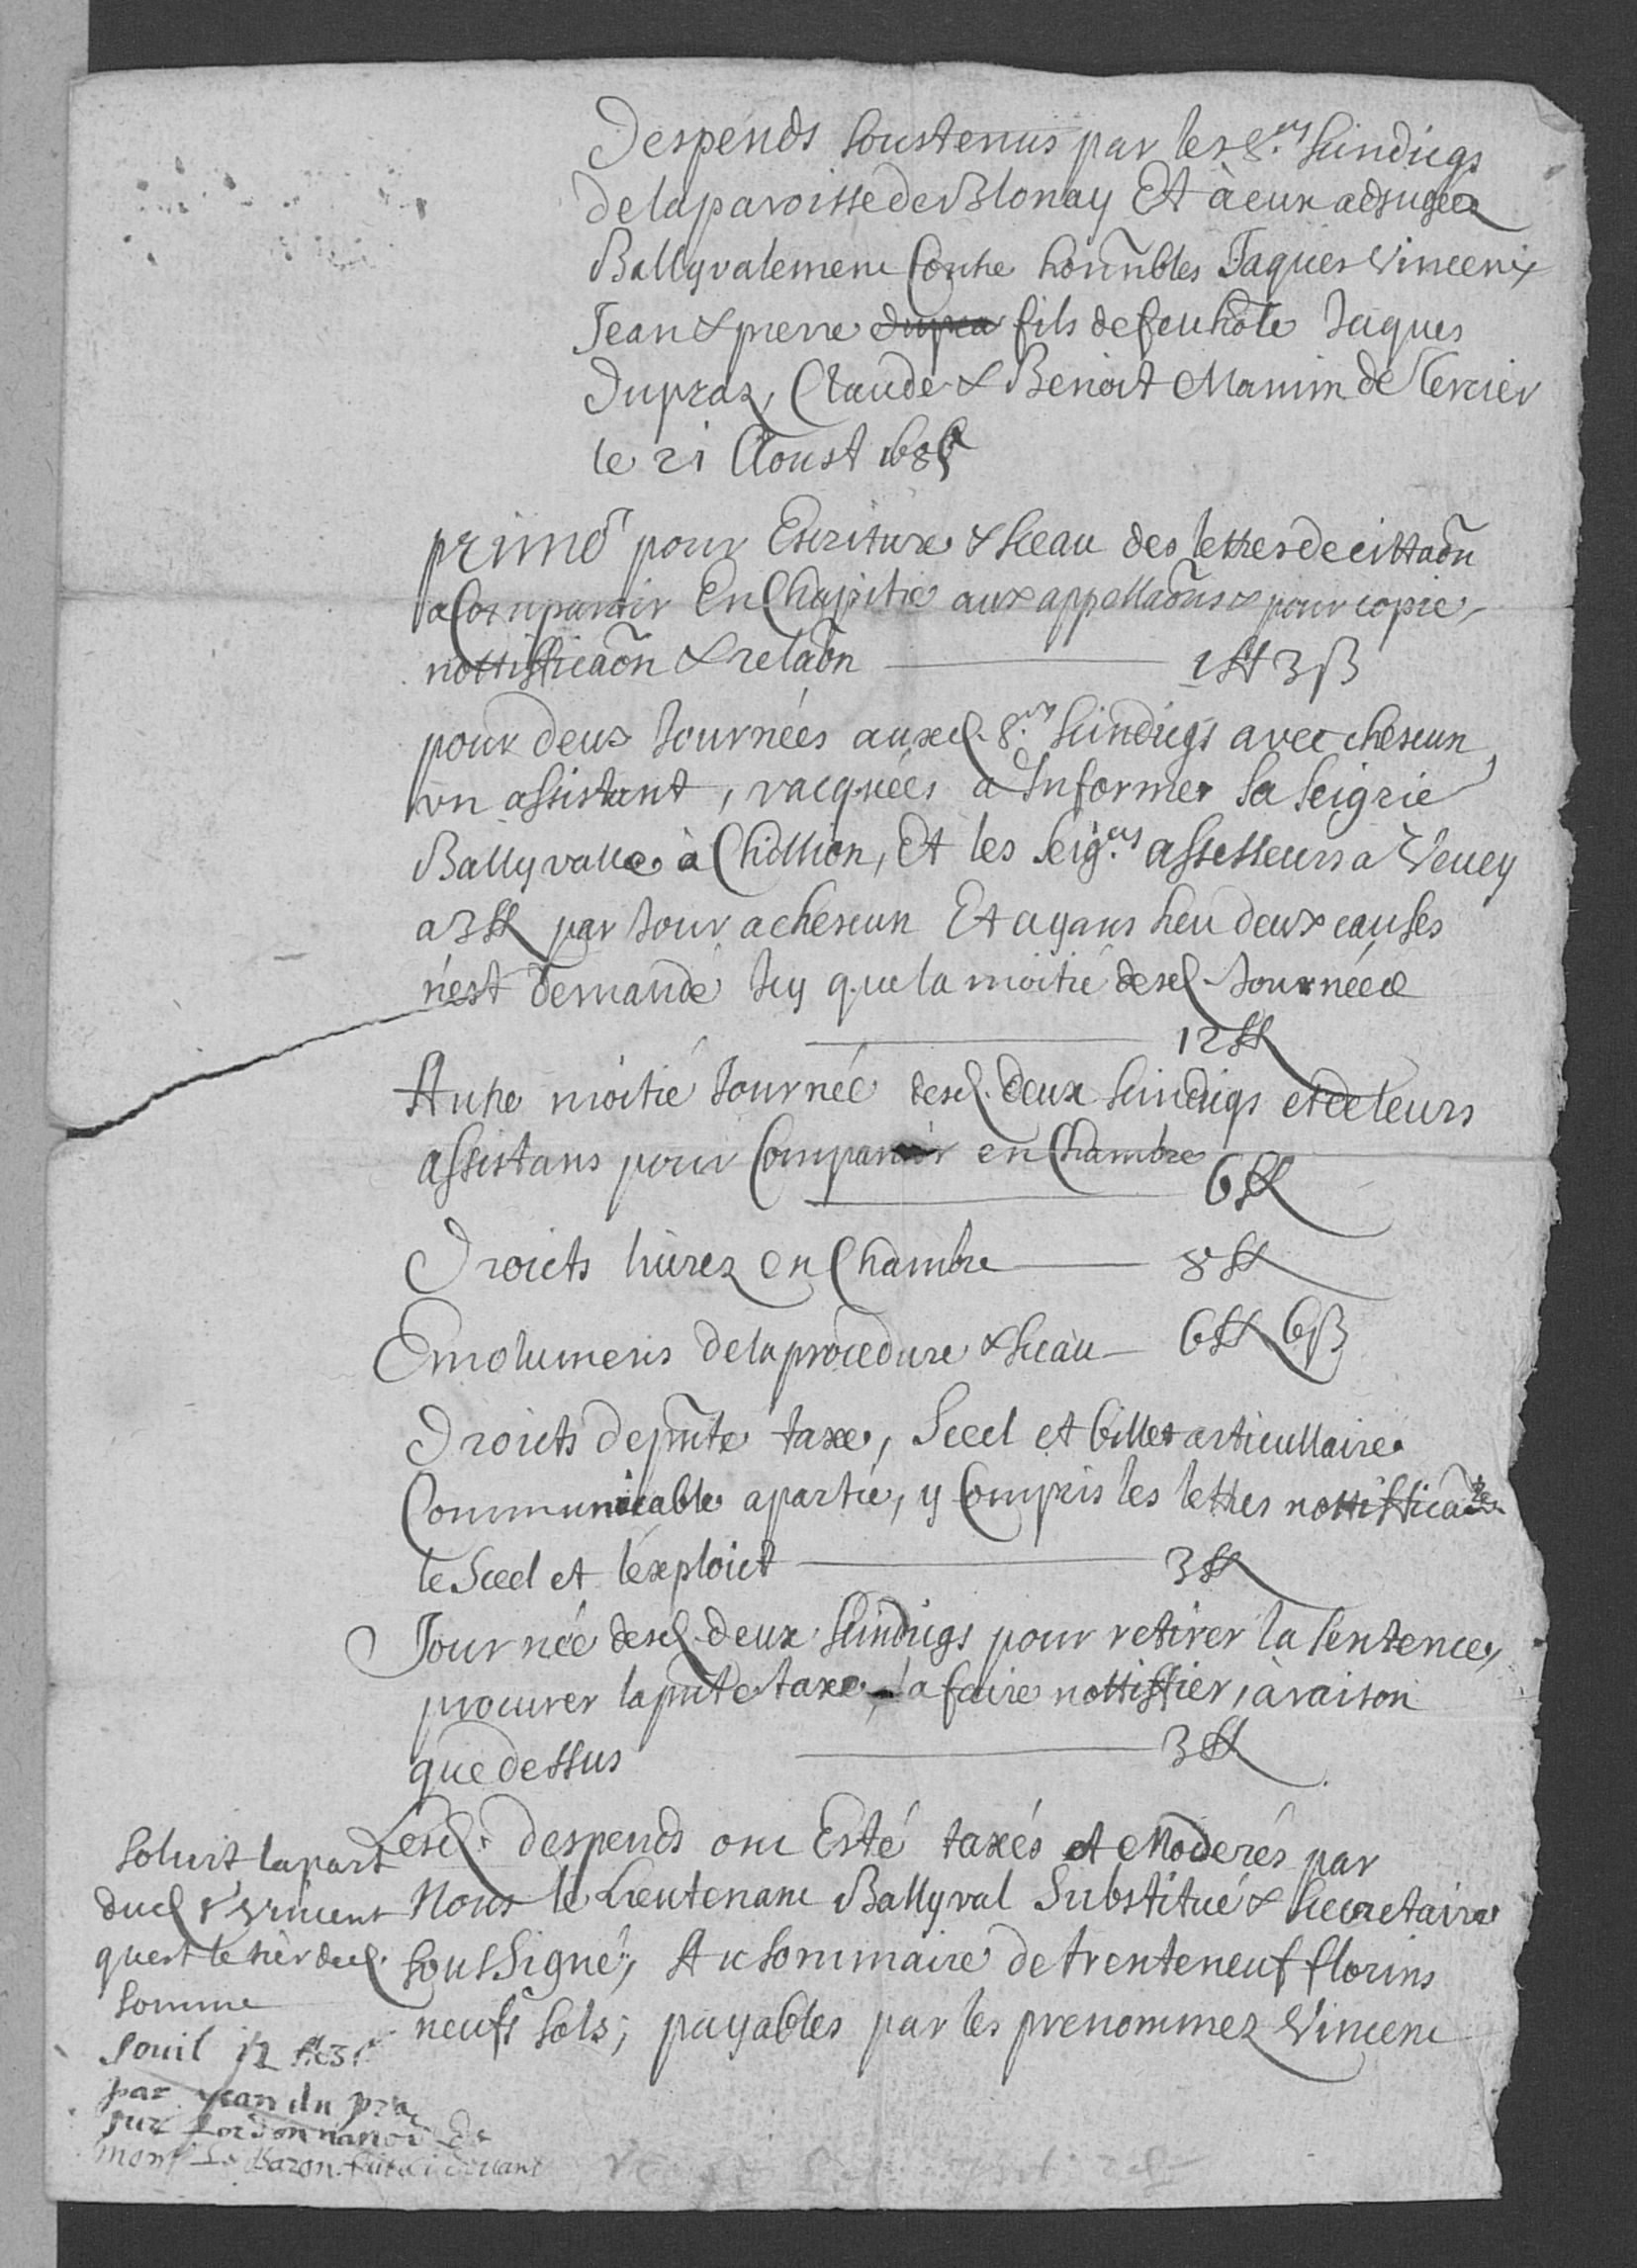 Despends soustenus par les Srs Sindicqs
de la paroisse de Blonay Et à eux adjugés
Ballyvalement Contre hoñnbles Jaques Vincent
Jean & pierre dupra fils de feu hôte Jaques
Dupraz, Claude & Benoit Mamin de Clercier
le 21 Aoust
primo pour Escriture & Sceau des lettres de cittaõn
a Comparoir En Chapitre aux appellaõns & pour copie,
nottifficaõn & relaõn 1 ff 3 ß
pour deux Journées auxd. Srs Sindicqs avec chescun
un assistant, vacquées à Informer Sa Seigrie
Ballyvalle à Chillion, Et les Seigrs assesseurs a Vevey
a 3 ff par Jour a chescun Et ayans heu deux causes
n'est demandé Icy que la moitié desd. Journées
12 ff
Autre moitié Journée desd. deux Sindicqs et de leurs
assistans pour Comparoir en Chambre 6 ff
Droicts livrez en Chambre 8 ff
Emolumens de la procedure & Sceau 6 ff 6 ß
Droicts de pñte taxe, Scel et billet articullaire
Communicable a partie, y Compris les lettres
le Scel et l'exploict 3 ff
Journée desd. deux Sindicqs pour retirer la Sentence,
procurer la pñte taxe, la faire nottiffier, à raison
que dessus 3 ff
Lesd. despends ont Esté taxés et Moderés par
Nous le Lieutenant Ballyval Substitué & Secretaire
soussigné, Au sommaire de trente neuf florins
neufs sols; payables par les prenommez Vincent
Soluit la part
dud Vincent
qu'est le tier de lad.
Somme
12
par jean du pra
sur Lordonnance de
mons Le Baron